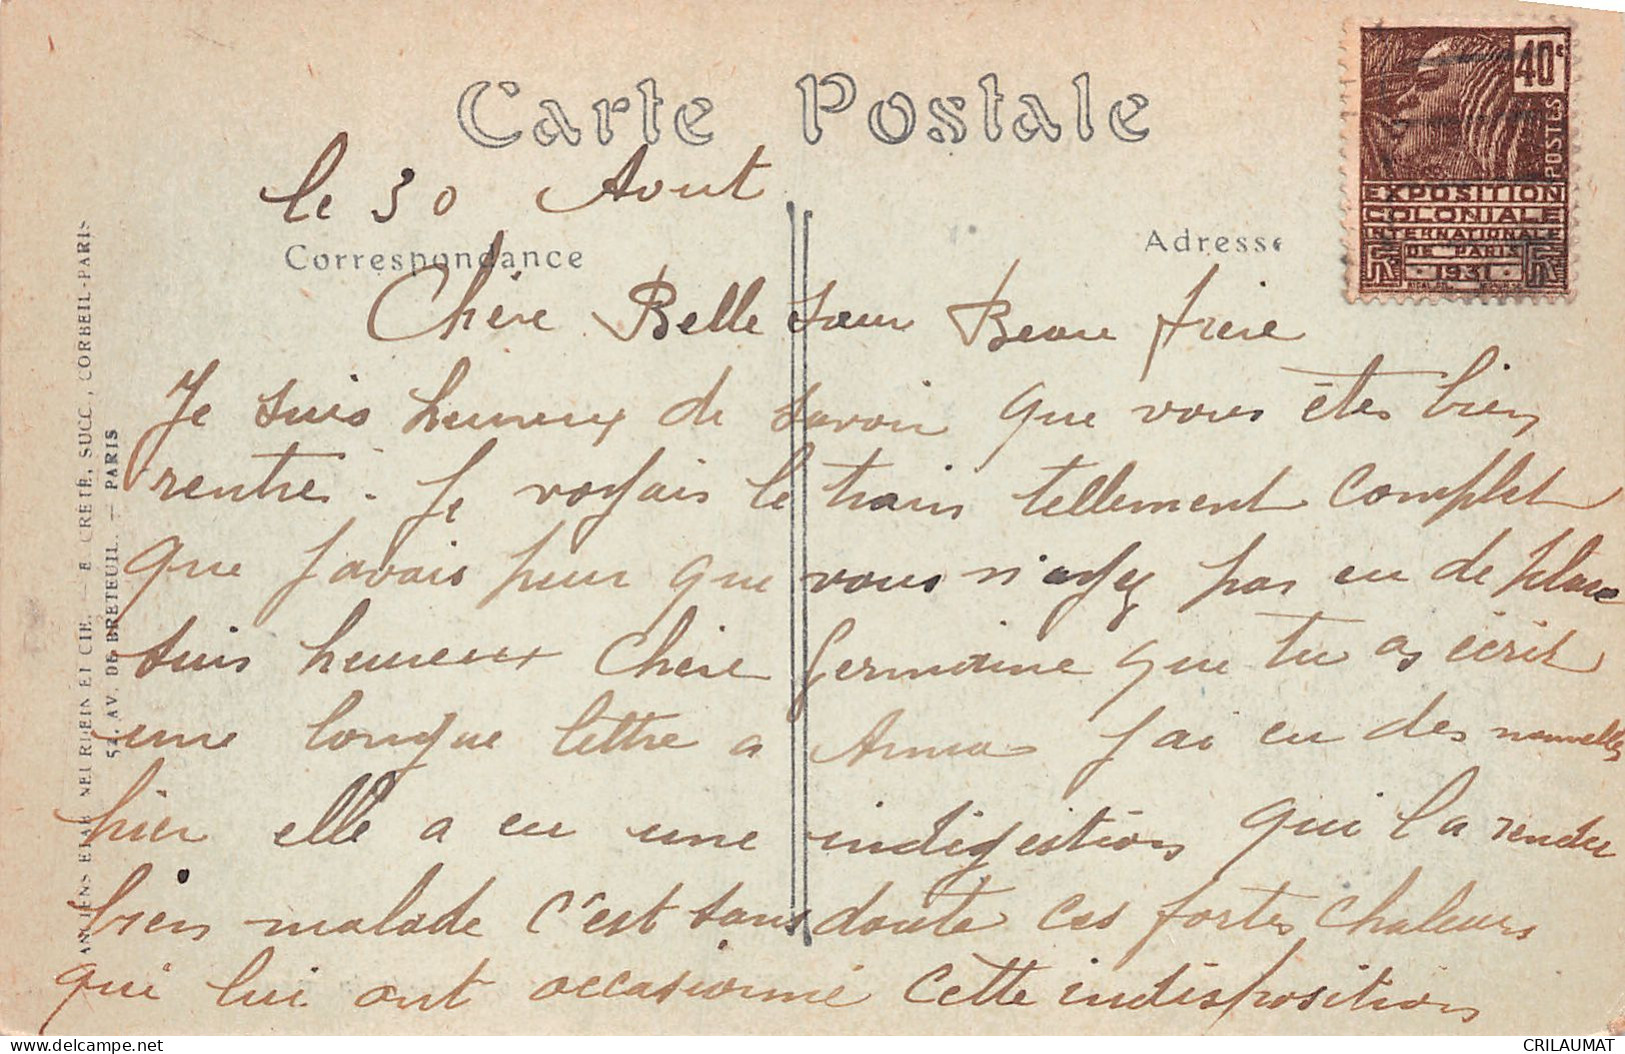 Carte Postale
le 30 Aout
Correspondance
Adresse
40c
POSTES
EXPOSITION
COLONIALE
INTERNATIONALE
DE PARIS
1931
Chère Belle sœur Beau frère
Je suis heureux de savoir que vous êtes bien
rentrés. Je voyais le train tellement complet
que javais peur que vous n'ayez pas eu de place
suis heureux Chère Germaine que tu as écrit
une longue lettre a Anna j'ai eu des nouvelles
hier elle a eu une indigestion qui l'a rendu
bien malade c'est sans doute ces fortes chaleurs
qui lui ont occasionné cette indisposition
ANCIENS ETAB. NEURDEIN ET CIE. — E. CRÉTÉ, SUCC., CORBEIL-PARIS
52, AV. DE BRETEUIL. — PARIS
CRILAUMAT